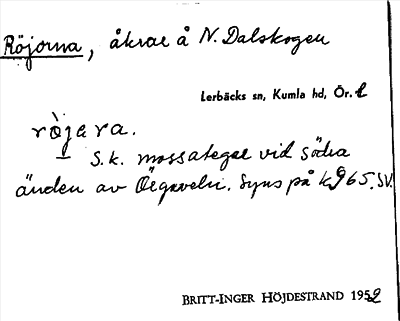 Röjorna, åkrar å N. Dalskogen
Lerbäcks sn, Kumla hd, Ör. l
ròjara.
S.k. mossategar vid södra
änden av Ölsgaveln. Syns på k 965. SV.
BRITT-INGER HÖJDESTRAND 1952